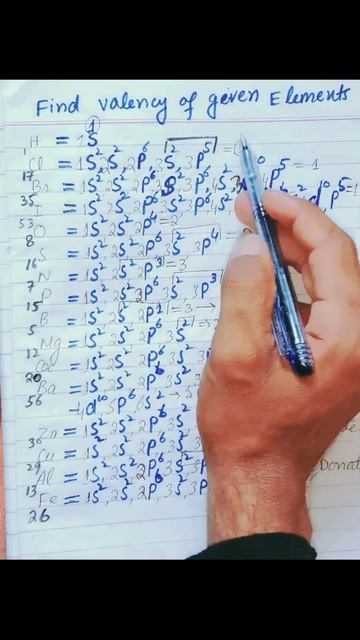 Find valency of geven Elements
H = 1S¹
1
Cl = 1S², 2S², 2P⁶, 3S², 3P⁵ =
17
Br = 1S², 2S², 2P⁶, 3S², 3P⁶, 4S², 3d¹⁰, 4P⁵ = 1
35
I = 1S², 2S², 2P⁶, 3S², 3P⁶, 4S²
53
O = 1S², 2S², 2P⁴ = 2
8
S = 1S², 2S², 2P⁶, 3S², 3P⁴ =
16
N = 1S², 2S², 2P³ = 3
7
P = 1S², 2S², 2P⁶, 3S², 3P³
15
B = 1S², 2S², 2P¹ = 3 →
5
Mg = 1S², 2S², 2P⁶, 3S²
12
Ca = 1S², 2S², 2P⁶, 3S², 3P
20
Ba = 1S², 2S², 2P⁶, 3S²
56
4d¹⁰, 5P⁶, 6S² → 2
Zn = 1S², 2S², 2P⁶, 3S²
30
Cu = 1S², 2S², 2P⁶, 3S²
29
Al = 1S², 2S², 2P⁶, 3S², 3P
13
Fe = 1S², 2S², 2P⁶, 3S², 3P
26
Donat